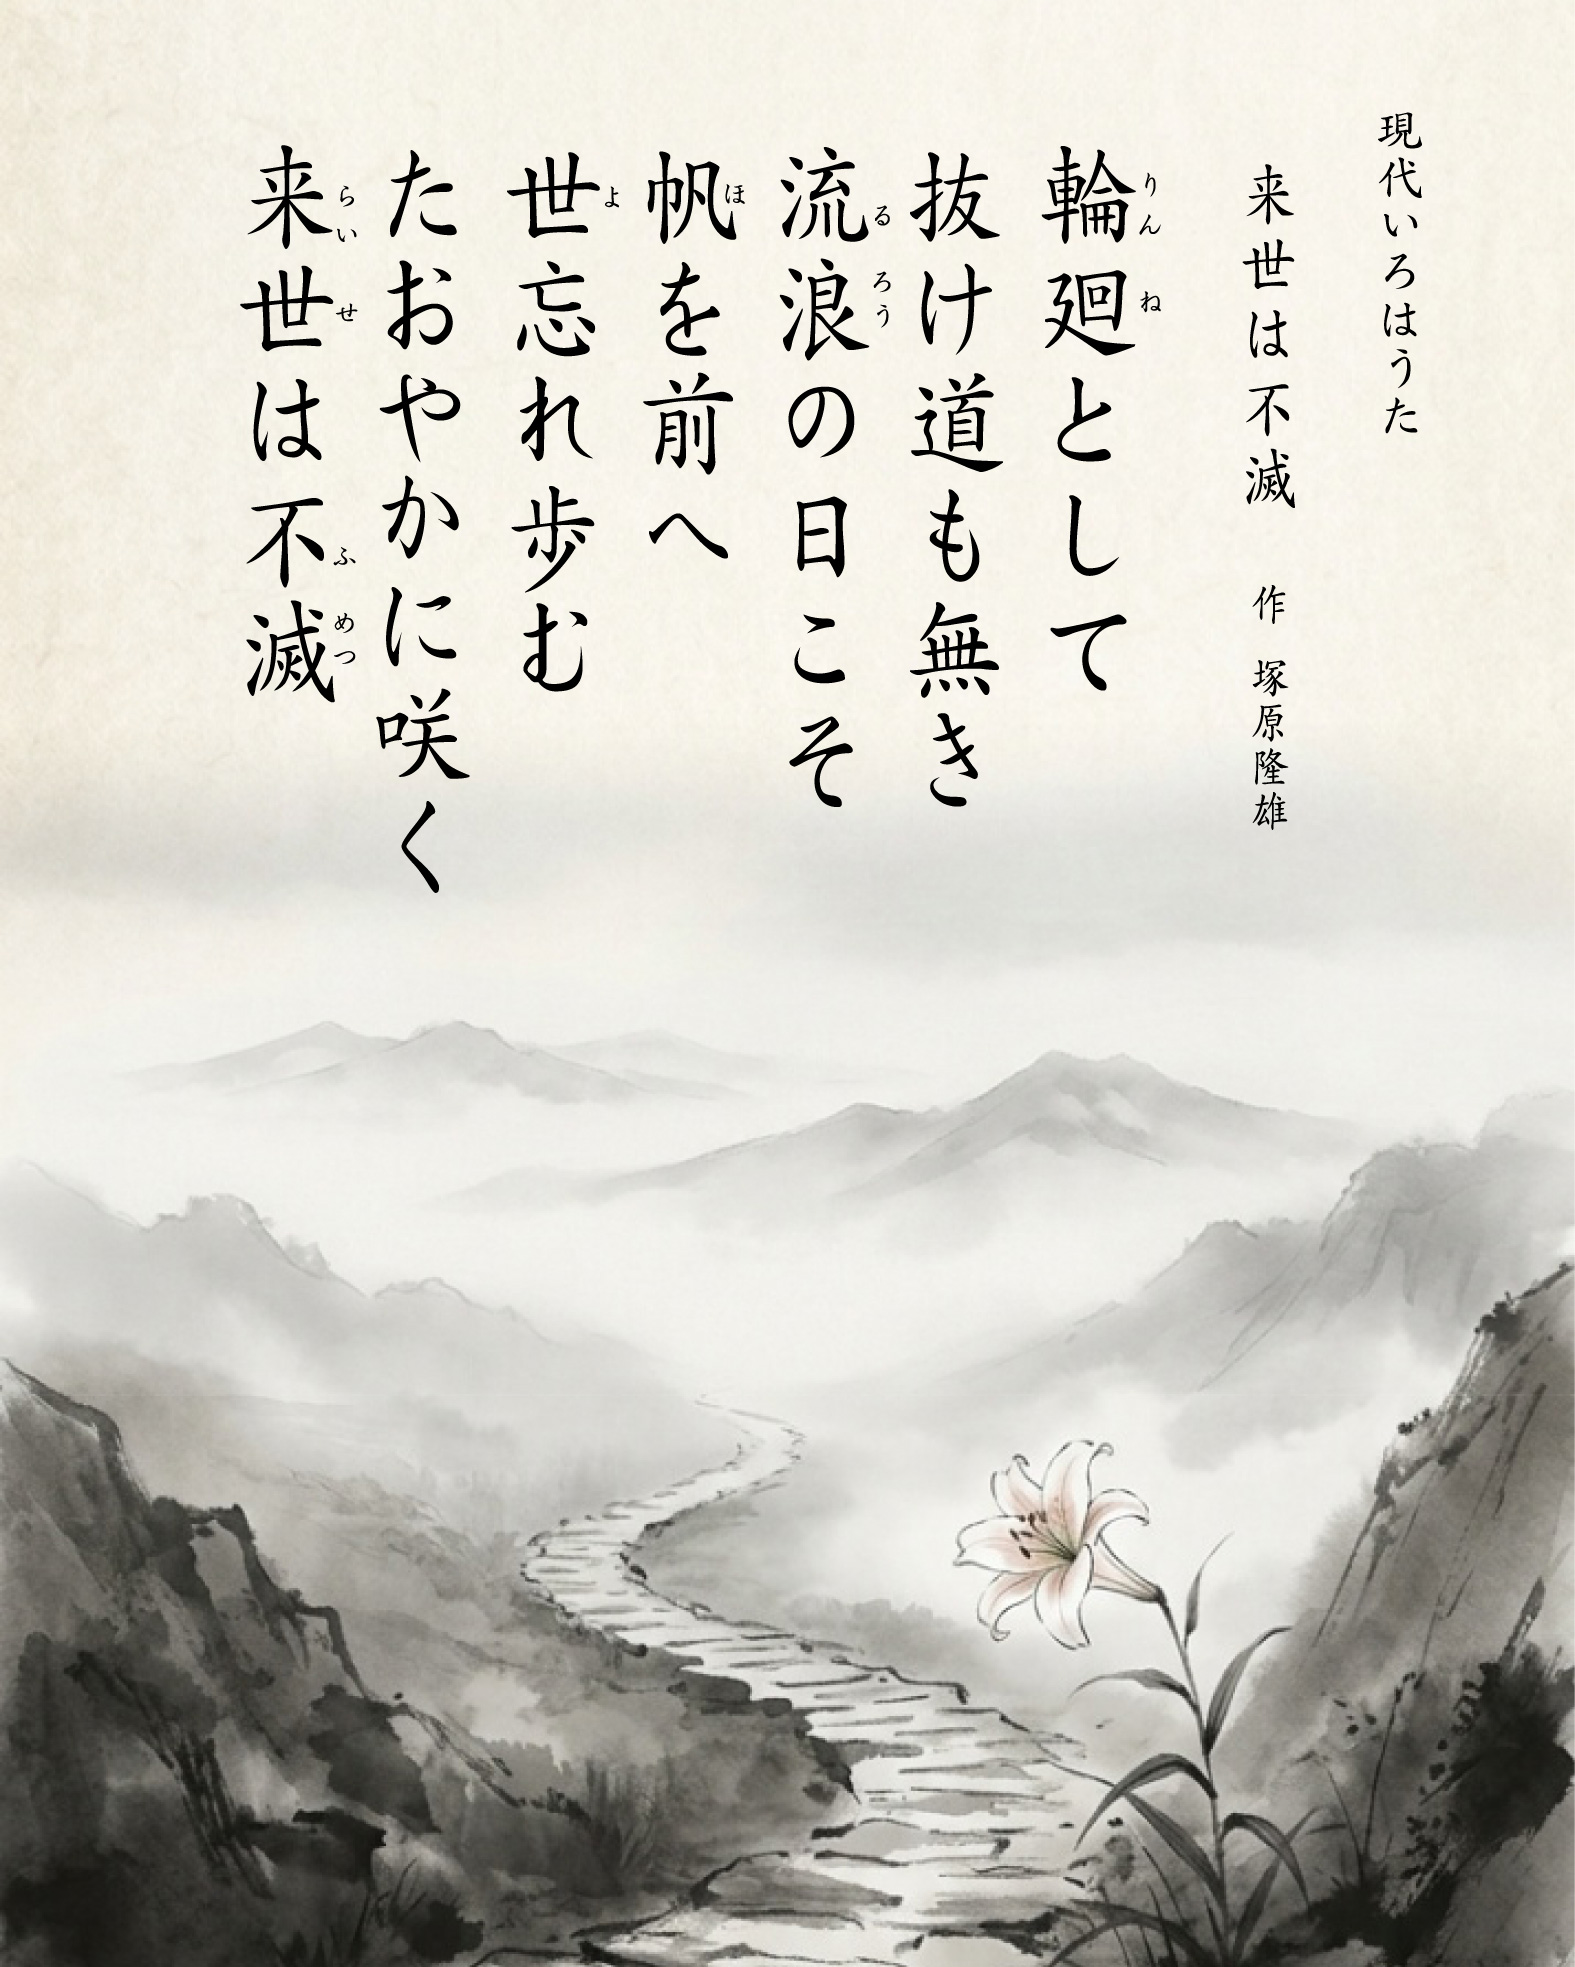 現代いろはうた
来世は不滅 作 塚原隆雄
輪廻として
りんね
抜け道も無き
流浪の日こそ
るろう
帆を前へ
ほ
世忘れ歩む
よ
たおやかに咲く
来世は不滅
らいせ ふめつ